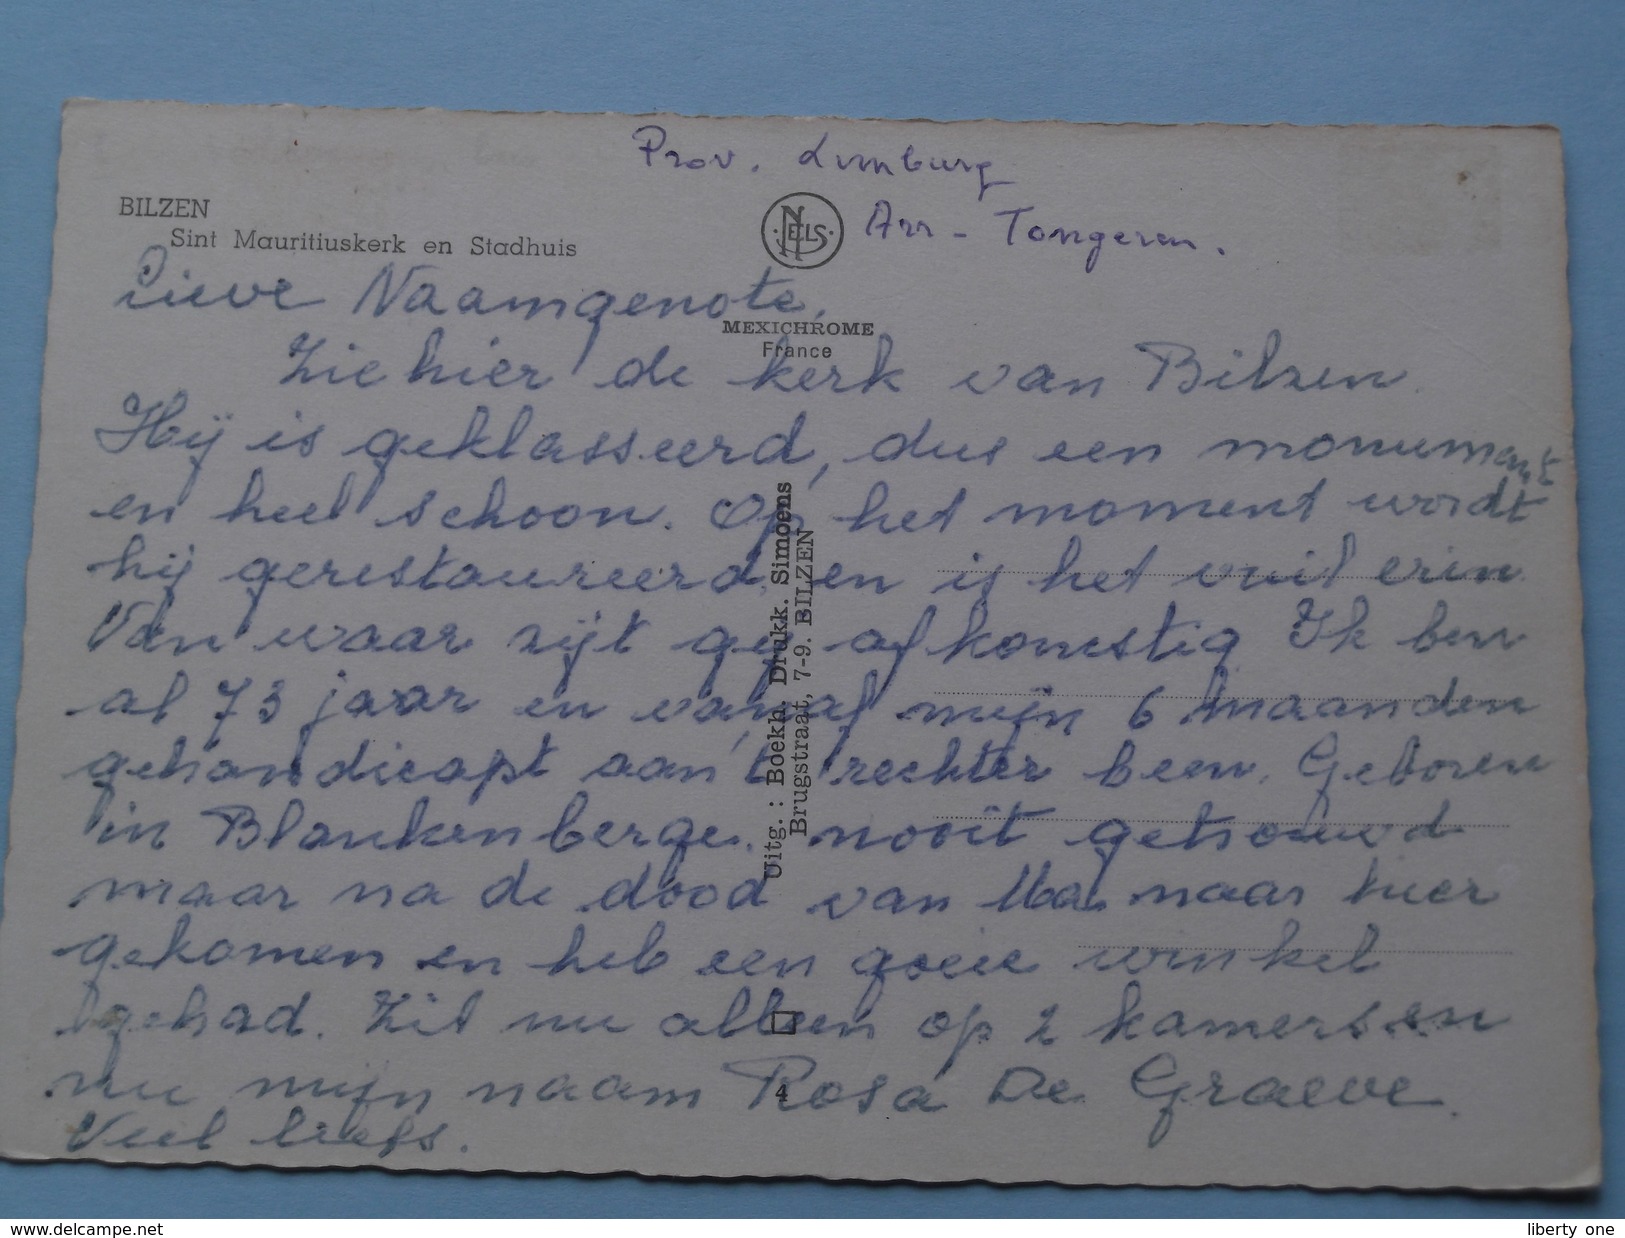 Prov. Limburg
Arr - Tongeren.
BILZEN
Sint Mauritiuskerk en Stadhuis
NELS
MEXICHROME
France
Lieve Naamgenote,
Zie hier de kerk van Bilzen
Hij is geklasseerd, dus een monument
en heel schoon. Op het moment wordt
hij gerestaureerd, en is het vuil erin
Van waar zijt gij afkomstig Ik ben
al 73 jaar en vanaf mijn 6 maanden
gehandicapt aan 't rechter been. Geboren
in Blankenberge. nooit getrouwd
maar na de dood van Ma naar hier
gekomen en heb een goeie winkel
gehad. Zit nu alleen op 2 kamers en
nu mijn naam Rosa De Graeve.
Veel liefs.
Uitg. : Boekh. Drukk. Simoens
Brugstraat, 7-9. BILZEN
4
www.delcampe.net
liberty one